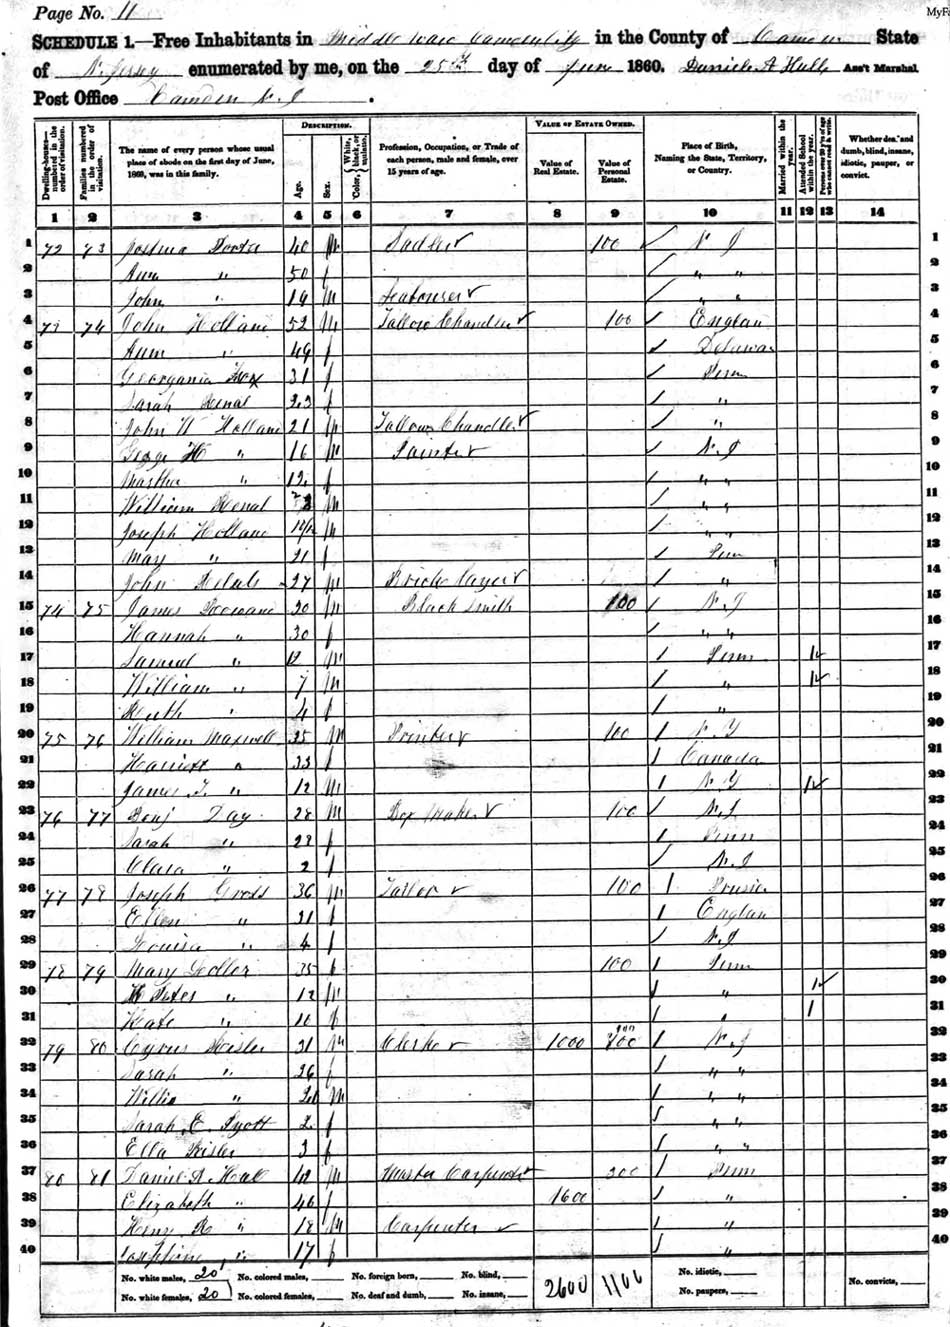 Page No. 11
MyFa
SCHEDULE 1.—Free Inhabitants in Middle Ward Camden City in the County of Camden State
of N. Jersey enumerated by me, on the 25th day of June 1860. Daniel A Hall Ass't Marshal
Post Office Camden N. J.
Dwelling-houses— numbered in the order of visitation.
Families numbered in the order of visitation.
The name of every person whose usual place of abode on the first day of June, 1860, was in this family.
DESCRIPTION.
Age.
Sex.
Color, White, black, or mulatto.
Profession, Occupation, or Trade of each person, male and female, over 15 years of age.
VALUE OF ESTATE OWNED.
Value of Real Estate.
Value of Personal Estate.
Place of Birth, Naming the State, Territory, or Country.
Married within the year.
Attended School within the year.
Persons over 20 y'rs of age who cannot read & write.
Whether deaf and dumb, blind, insane, idiotic, pauper, or convict.
1 2 3 4 5 6 7 8 9 10 11 12 13 14
1 72 73 Joshua 40 m Sadler 100 N J 1
2 Ann " 50 f " " 2
3 John " 19 m " " 3
4 73 74 John Holland 52 m Tallow Chandler 100 England 4
5 Ann " 49 f Delawar 5
6 Georgania Fox 31 f Penn 6
7 Sarah 23 f " 7
8 John W Holland 21 m Tallow Chandler " 8
9 George H " 16 m Painter N. J 9
10 Martha " 12 f " " 10
11 William m " " 11
12 Joseph Holland m " " 12
13 Mary " 21 f Penn 13
14 John 27 m Brick Layer " 14
15 74 75 James 30 m Black Smith 100 N. J 15
16 Hannah " 30 f " " 16
17 Samuel " m Penn 17
18 William " 7 m " 18
19 Ruth " 4 f " 19
20 75 76 William Maxwell 35 m Printer 100 N. Y 20
21 Harriett " 33 f Canada 21
22 James T. " 12 m N Y 22
23 76 77 Benj Day 28 m Box Maker 100 N. J 23
24 Sarah " 28 f Penn 24
25 Clara " 2 f N. J 25
26 77 78 Joseph Gross 36 m Tailor 100 Prusia 26
27 Ellen " 21 f Englan 27
28 Louisa " 4 f N. J 28
29 78 79 Mary 35 f 100 Penn 29
30 " 12 m " 30
31 Kate " 10 f " 31
32 79 80 Cyrus Risler 31 m Clerk 1000 N. J 32
33 Sarah " 26 f " " 33
34 Willis " m " " 34
35 Sarah E. Lyott 2 f " " 35
36 Ella Risler 3 f " " 36
37 80 81 Daniel A. Hall 42 m Master Carpenter 200 Penn 37
38 Elizabeth " 46 f 1600 " 38
39 Henry R " 18 m Carpenter " 39
40 Josephine " 17 f " 40
No. white males, 20 No. colored males, No. foreign born, No. blind, 2600 1100 No. idiotic,
No. white females, 20 No. colored females, No. deaf and dumb, No. insane, No. paupers, No. convicts,